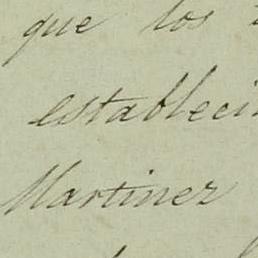 que los
estableci
Martinez